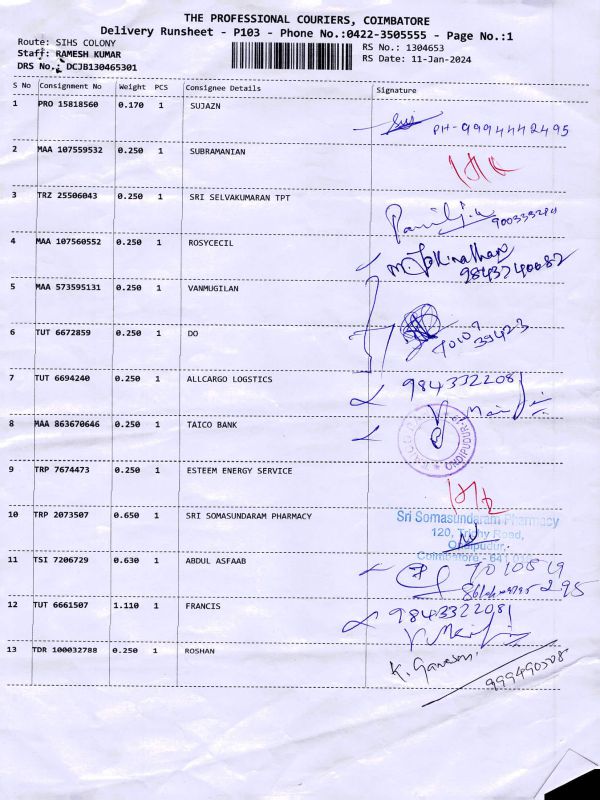 THE PROFESSIONAL COURIERS, COIMBATORE
Delivery Runsheet - P103 - Phone No.:0422-3505555 - Page No.:1
Route: SIHS COLONY
RS No.: 1304653
Staff: RAMESH KUMAR
RS Date: 11-Jan-2024
DRS No.: DCJB130465301
S No Consignment No Weight PCS Consignee Details Signature
1 PRO 15818560 0.170 1 SUJAZN
PH-9994442495
2 MAA 107559532 0.250 1 SUBRAMANIAN
3 TRZ 25506043 0.250 1 SRI SELVAKUMARAN TPT
4 MAA 107560552 0.250 1 ROSYCECIL
9843740082
5 MAA 573595131 0.250 1 VANMUGILAN
6 TUT 6672859 0.250 1 DO
7 TUT 6694240 0.250 1 ALLCARGO LOGSTICS
9843322081
8 MAA 863670646 0.250 1 TAICO BANK
ONDIPUDUR
9 TRP 7674473 0.250 1 ESTEEM ENERGY SERVICE
10 TRP 2073507 0.650 1 SRI SOMASUNDARAM PHARMACY
Sri Somasundaram Pharmacy
120, Trichy Road,
Ondipudur,
Coimbatore - 641
11 TSI 7206729 0.630 1 ABDUL ASFAAB
12 TUT 6661507 1.110 1 FRANCIS
9843322081
13 TDR 100032788 0.250 1 ROSHAN
K. Ganesan